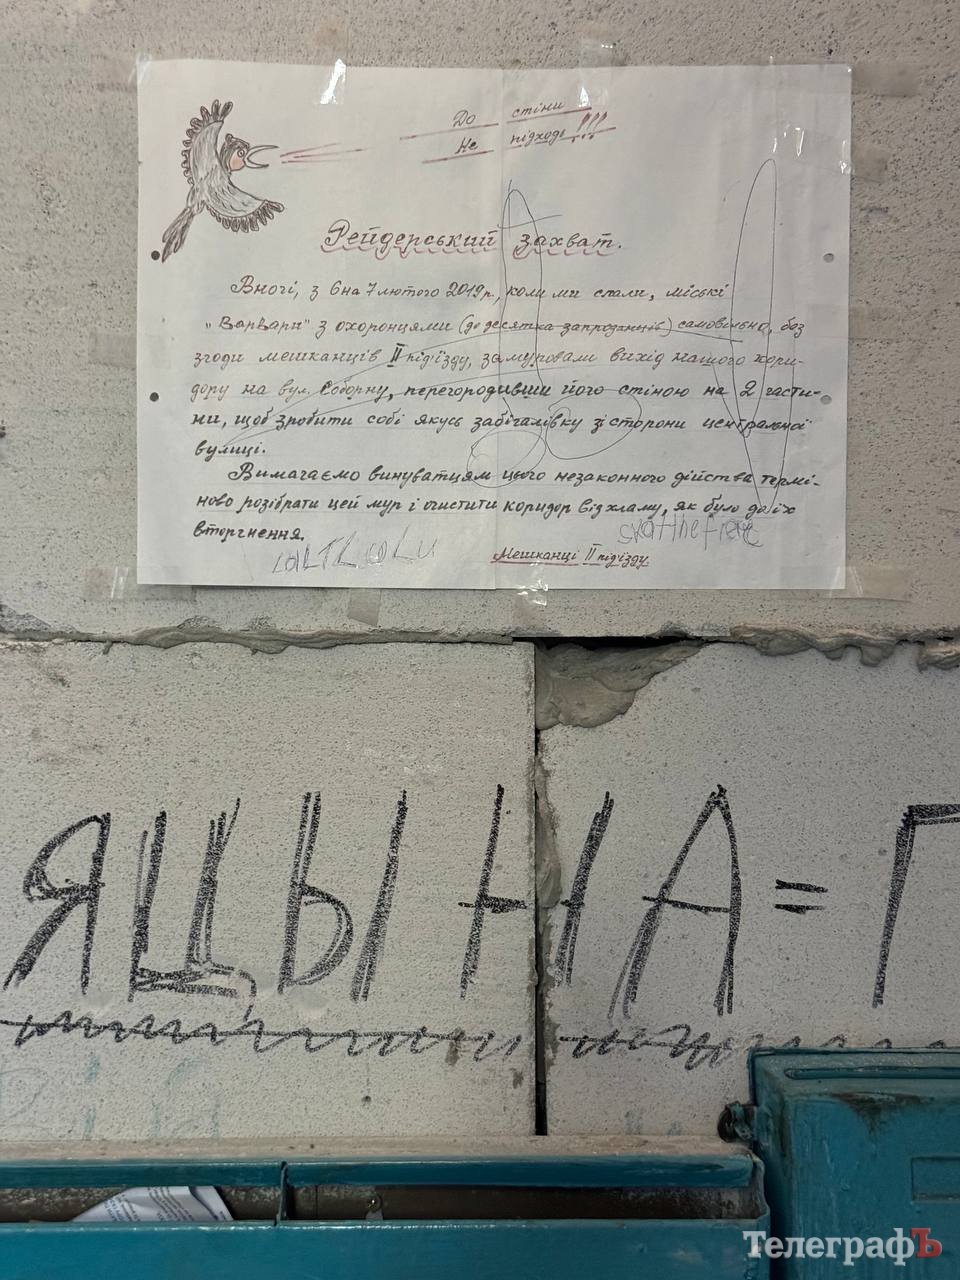 До стіни
Не підходь!!!
Рейдерський захват.
Вночі, з 6 на 7 лютого 2019р., коли ми спали, міські
„Варвари" з охоронцями (до десятка запроданців) самовільно, без
згоди мешканців II під'їзду, замуровали вихід нашого кори-
дору на вул. Соборну, перегородивши його стіною на 2 части-
ни, щоб зробити собі якусь забігалівку зі сторони центральної
вулиці.
Вимагаємо винуватцям цього незаконного дійства термі-
ново розібрати цей мур і очистити коридор від хламу, як було до їх
вторгнення.
Мешканці II під'їзду
ЯЦЫНА=Г
ТелеграфЪ